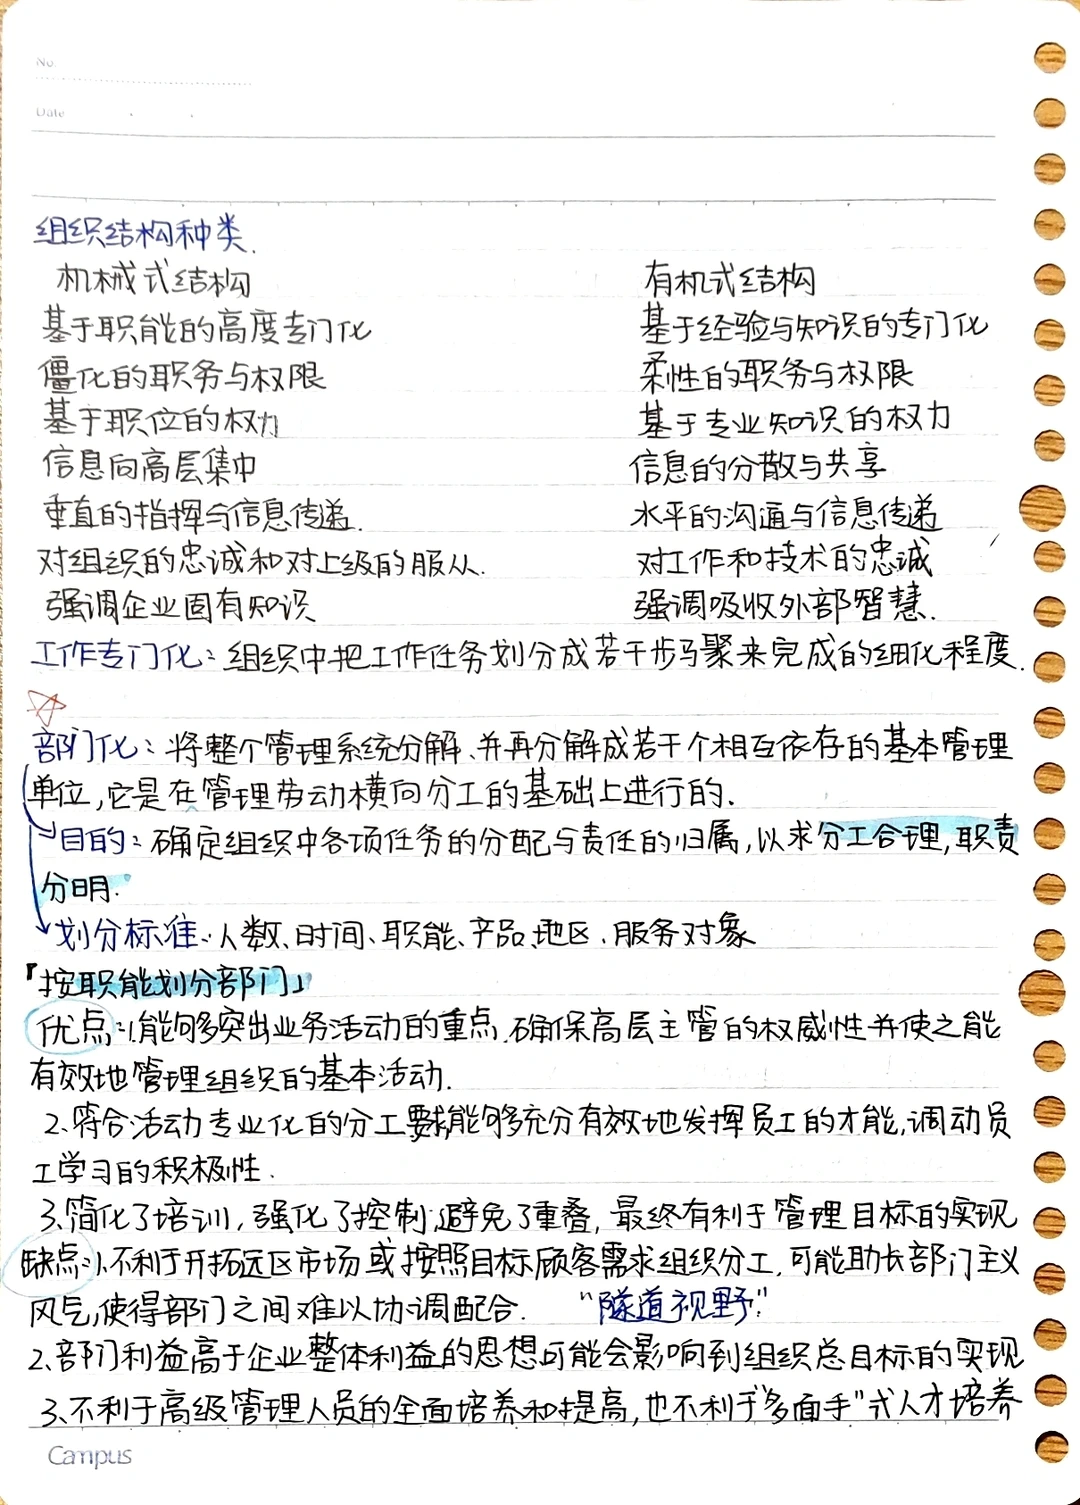 No.
Date
组织结构种类.
机械式结构 有机式结构
基于职能的高度专门化 基于经验与知识的专门化
僵化的职务与权限 柔性的职务与权限
基于职位的权力 基于专业知识的权力
信息向高层集中 信息的分散与共享
垂直的指挥与信息传递. 水平的沟通与信息传递
对组织的忠诚和对上级的服从. 对工作和技术的忠诚
强调企业固有知识 强调吸收外部智慧.
工作专门化:组织中把工作任务划分成若干步骤来完成的细化程度.
部门化:将整个管理系统分解、并再分解成若干个相互依存的基本管理
单位,它是在管理劳动横向分工的基础上进行的.
目的:确定组织中各项任务的分配与责任的归属,以求分工合理,职责
分明.
划分标准:人数、时间、职能、产品、地区、服务对象
「按职能划分部门」
优点:1.能够突出业务活动的重点.确保高层主管的权威性并使之能
有效地管理组织的基本活动.
2.符合活动专业化的分工要求,能够充分有效地发挥员工的才能,调动员
工学习的积极性.
3.简化了培训,强化了控制,避免了重叠,最终有利于管理目标的实现
缺点:1.不利于开拓远区市场或按照目标顾客需求组织分工,可能助长部门主义
风气,使得部门之间难以协调配合. “隧道视野”
2.部门利益高于企业整体利益的思想可能会影响到组织总目标的实现
3.不利于高级管理人员的全面培养和提高,也不利于“多面手”式人才培养
Campus